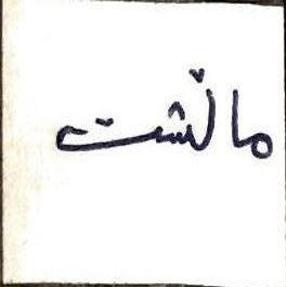 ماتشت